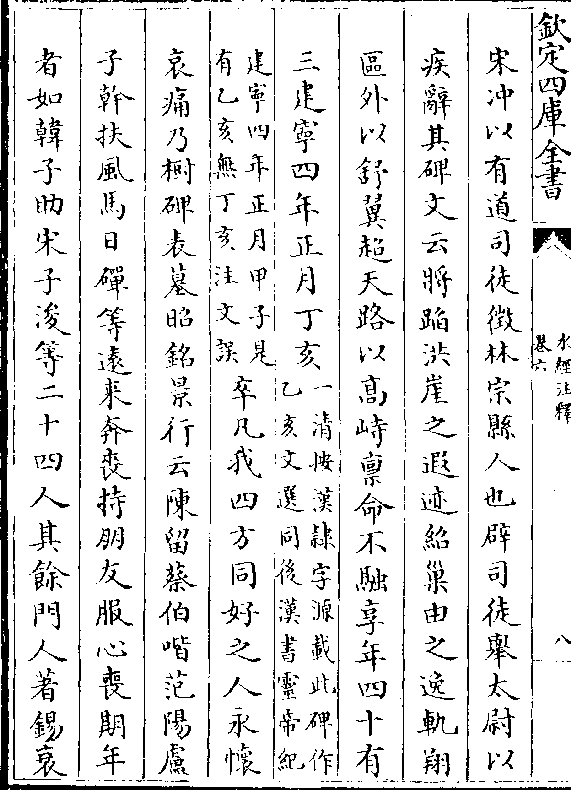 欽定四庫全書
水經注釋
卷六
八
宋沖以有道司徒徵林宗縣人也辟司徒舉太尉以
疾辭其碑文云將蹈洪崖之遐迹紹巢由之逸軌翔
區外以舒翼超天路以高峙禀命不融享年四十有
三建寧四年正月丁亥
一清按漢隷字源載此碑作
乙亥文選同後漢書靈帝紀
建寧四年正月甲子是
有乙亥無丁亥注文誤
卒凡我四方同好之人永懷
哀痛乃樹碑表墓昭銘景行云陳留蔡伯喈范陽盧
子幹扶風馬日磾等遠来奔喪持朋友服心喪期年
者如韓子助宋子浚等二十四人其餘門人著錫衰